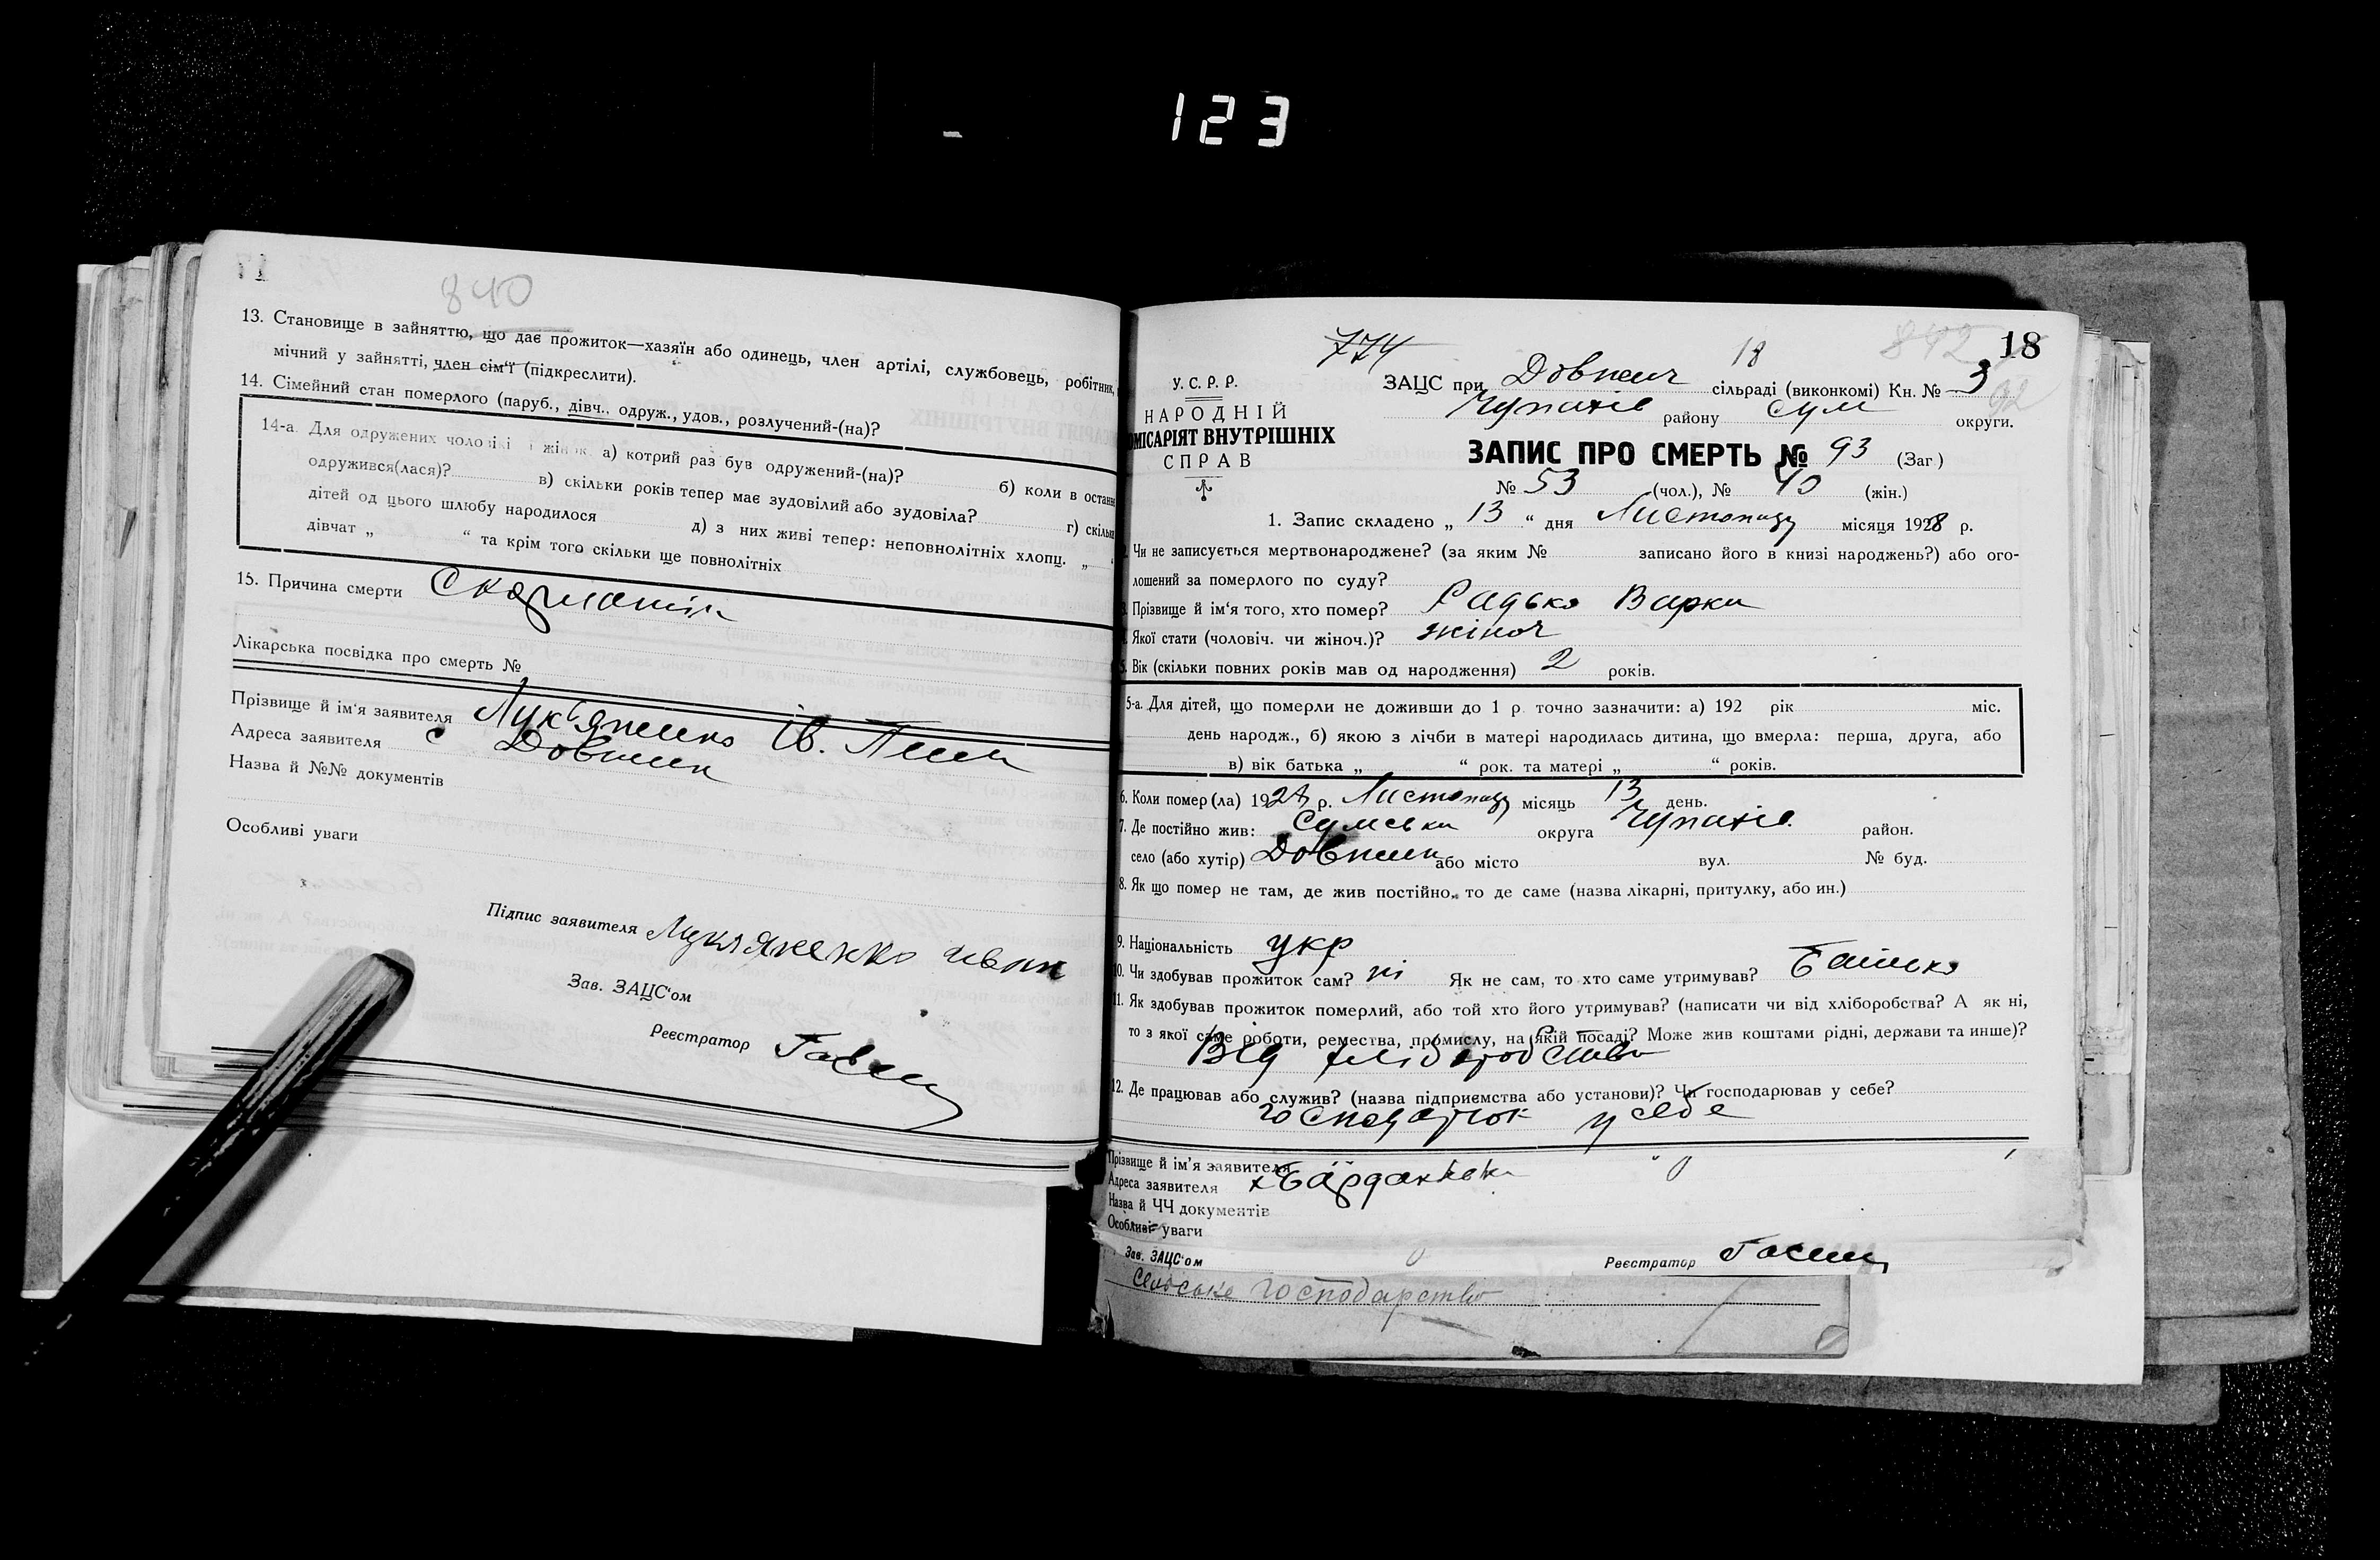 123
840
13. Становище в зайняттю, що дає прожиток—хазяїн або одинець, член артілі, службовець, робітник,
мічний у зайнятті, член сім'ї (підкреслити).
14. Сімейний стан померлого (паруб., дівч., одруж., удов., розлучений-(на)?
14-а. Для одружених чоловіків і жінок а) котрий раз був одружений-(на)? б) коли в останн
одружився(лася)? в) скільки років тепер має зудовілий або зудовіла? г) скільк
дітей од цього шлюбу народилося д) з них живі тепер: неповнолітніх хлопц. „
дівчат „ “ та крім того скільки ще повнолітніх
15. Причина смерти Скарлатін
Лікарська посвідка про смерть №
Прізвище й ім'я заявителя Лукьяненко Ів.
Адреса заявителя с Довжик
Назва й №№ документів
Особливі уваги
Підпис заявителя Лукяненко Иван
Зав. ЗАЦС'ом
Реєстратор
774 18 842 18
У. С. Р. Р.
НАРОДНІЙ
ОМІСАРІЯТ ВНУТРІШНІХ
СПРАВ
ЗАЦС при Довжич сільраді (виконкомі) Кн. № 3
Чупахів району Сум округи.
92
ЗАПИС ПРО СМЕРТЬ № 93 (Заг)
№ 53 (чол.), № 40 (жін.)
1. Запис складено „ 13 “ дня Листопаду місяця 1928 р.
Чи не записується мертвонароджене? (за яким № записано його в книзі народжень?) або ого-
лошений за померлого по суду?
Прізвище й ім'я того, хто помер? Радько Варка
Якої стати (чоловіч. чи жіноч.)? жіноч
5. Вік (скільки повних років мав од народження) 2 років.
5-а. Для дітей, що померли не доживши до 1 р. точно зазначити: а) 192 рік міс.
день народж., б) якою з лічби в матері народилась дитина, що вмерла: перша, друга, або
в) вік батька „ “ рок. та матері „ “ років.
6. Коли помер(ла) 1928 р. Листопаду місяць 13 день.
7. Де постійно жив: Сумська округа Чупахів район.
село (або хутір) Довжик або місто вул. № буд.
8. Як що помер не там, де жив постійно, то де саме (назва лікарні, притулку, або ин.)
9. Національність укр
10. Чи здобував прожиток сам? ні Як не сам, то хто саме утримував? Батько
11. Як здобував прожиток померлий, або той хто його утримував? (написати чи від хліборобства? А як ні,
то з якої саме роботи, ремества, промислу, на якій посаді? Може жив коштами рідні, держави та инше)?
Від хліборобства
12. Де працював або служив? (назва підприємства або установи)? Чи господарював у себе?
господарюк у себе
Прізвище й ім'я заявителя
Адреса заявителя
Назва й ЧЧ документів
Особливі уваги
Зав. ЗАЦС'ом Реєстратор
Сельске господарство